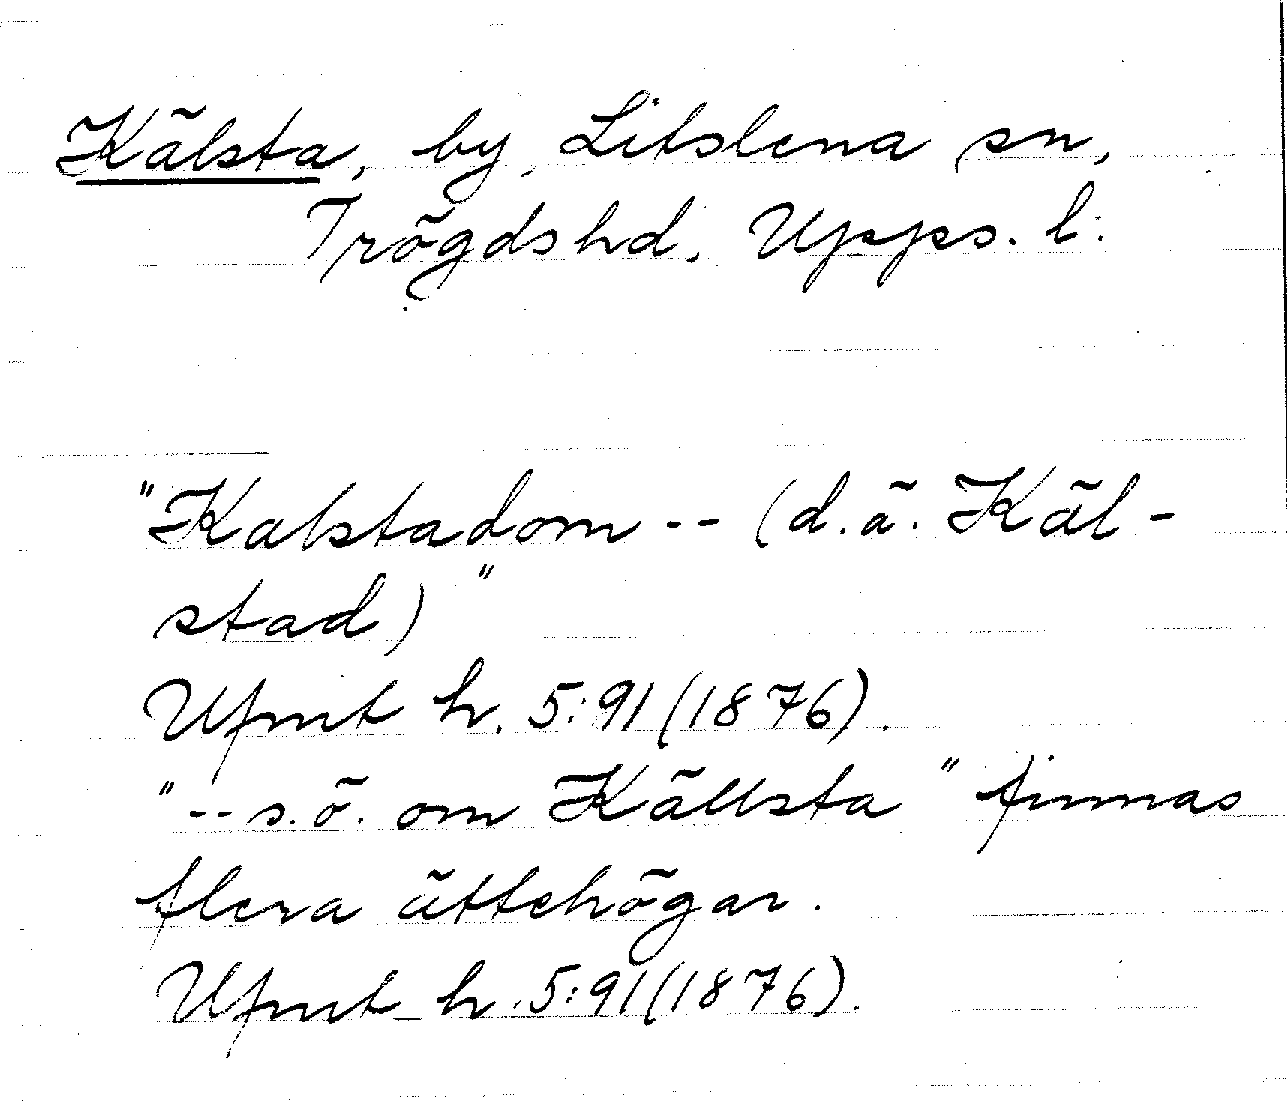 Kälsta, by, Litslena sn,
Trögds hd, Upps. l.
"Kalstadom -- (d.ä. Käl-
stad)"
Ufmt h. 5:91 (1876).
"-- s.ö. om Källsta" finnas
flera ättehögar.
Ufmt h. 5:91 (1876).